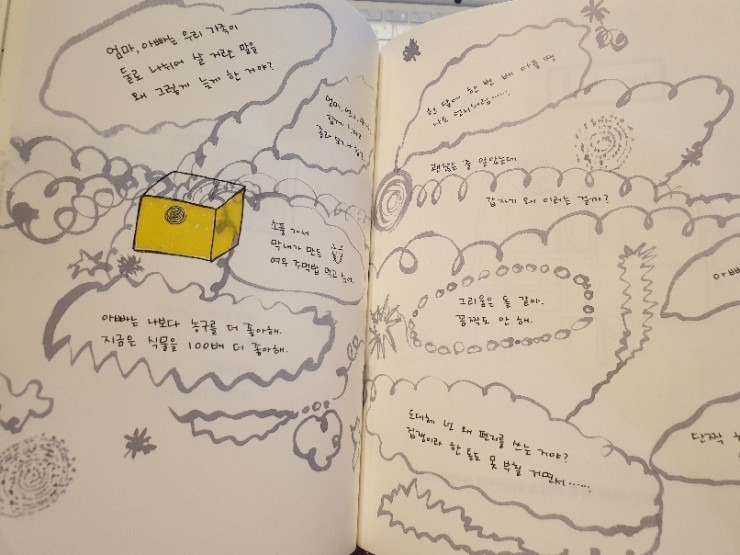 엄마, 아빠는 우리 가족이
둘로 나뉘어 살 거란 말을
왜 그렇게 늦게 한 거야?
엄마,
함께
소풍 가서
막내가 만든
여우 주먹밥 먹고 싶어.
아빠는 나보다 농구를 더 좋아해.
지금은 식물을 100배 더 좋아해.
한 달에 한 번 배 아플 땐
나도 언니처럼……
괜찮은 줄 알았는데
갑자기 왜 이러는 걸까?
그리움은 돌 같아.
꼼짝도 안 해.
아빠
도대체 넌 왜 편지를 쓰는 거야?
겁쟁이라 한 통도 못 부칠 거면서……
단짝